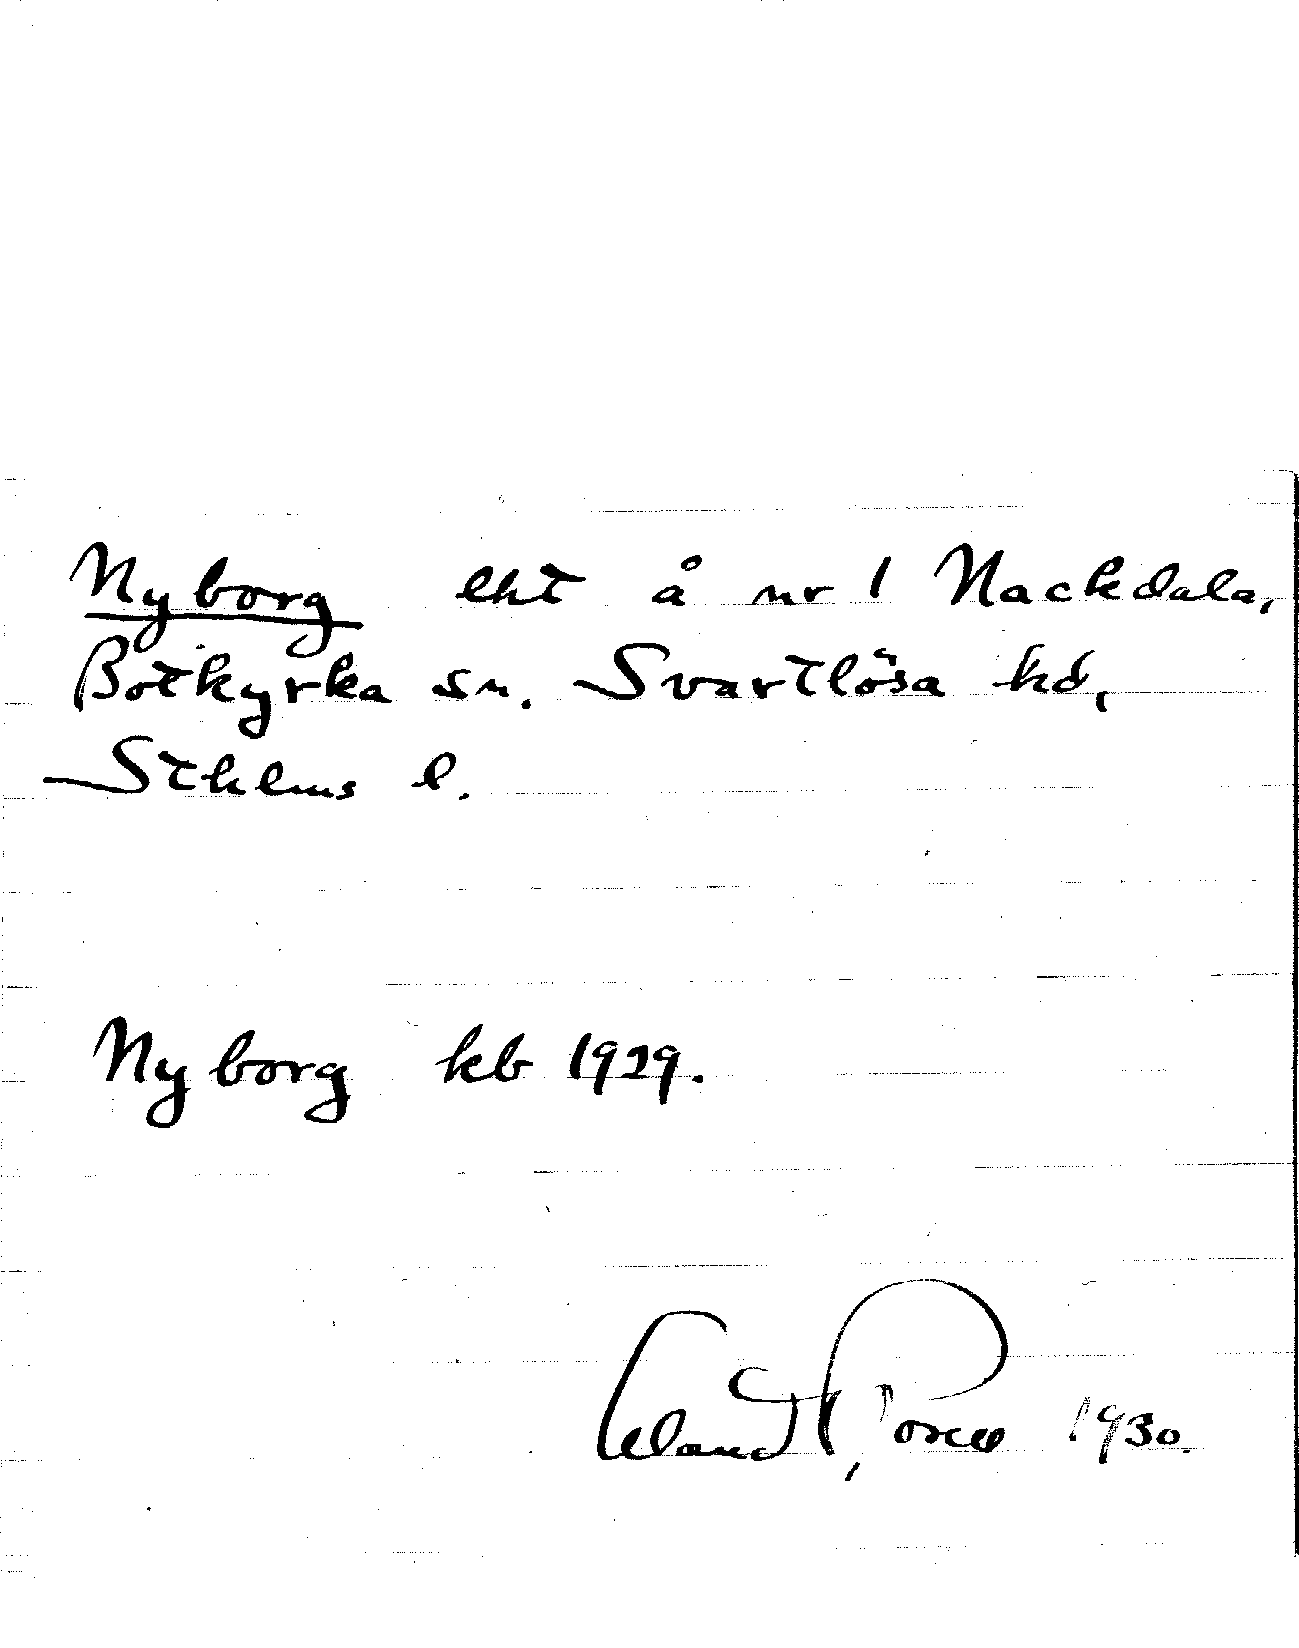 Nyborg lht å nr 1 Nackdala,
Botkyrka sn. Svartlösa hd,
Sthlms l.
Nyborg kb 1929.
1930.